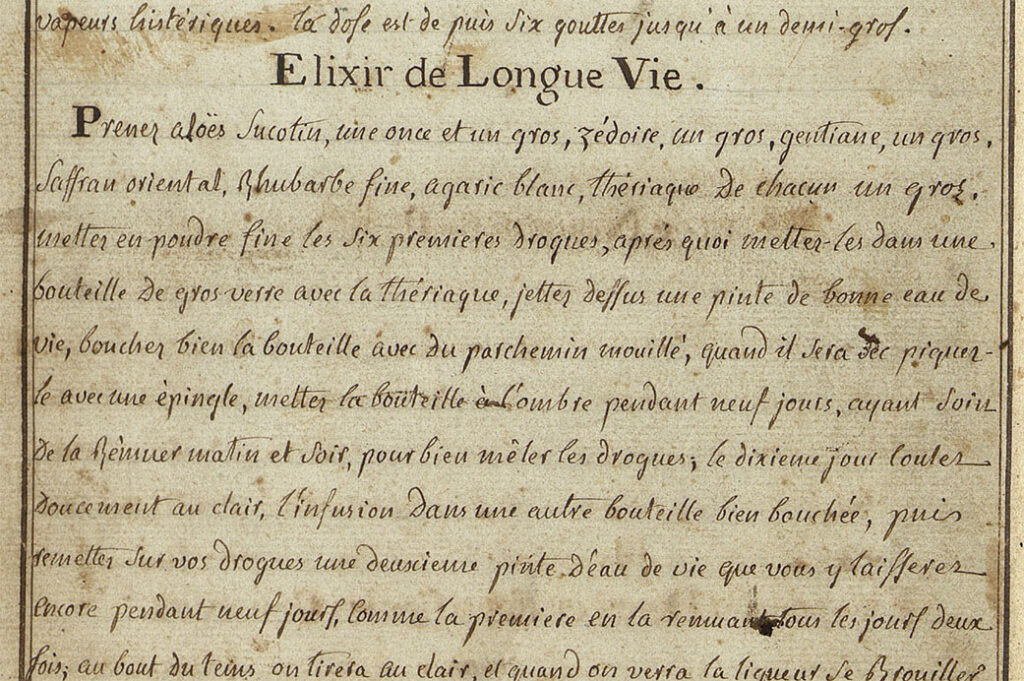 vapeurs histériques. la dose est de puis six gouttes jusqu'à un demi-gros.
Elixir de Longue Vie.
Prenez aloës sucotin, une once et un gros, zédoire, un gros, gentiane, un gros,
saffran oriental, Rhubarbe fine, agaric blanc, thériaque de chacun un gros.
mettez en poudre fine les six premieres drogues, aprés quoi mettez-les dans une
bouteille de gros verre avec la thériaque, jettez dessus une pinte de bonne eau de
vie, bouchez bien la bouteille avec du parchemin mouillé, quand il sera sec piquez-
le avec une épingle, mettez la bouteille à l'ombre pendant neuf jours, ayant soin
de la Rémuer matin et soir, pour bien mêler les drogues; le dixieme jour coulez
doucement au clair, l'infusion dans une autre bouteille bien bouchée, puis
remettez sur vos drogues une deuxieme pinte d'éau de vie que vous y laisserez
encore pendant neuf jours, comme la premiere en la remuant tous les jours deux
fois; au bout du tems on tirera au clair, et quand on verra la liqueur se Brouiller